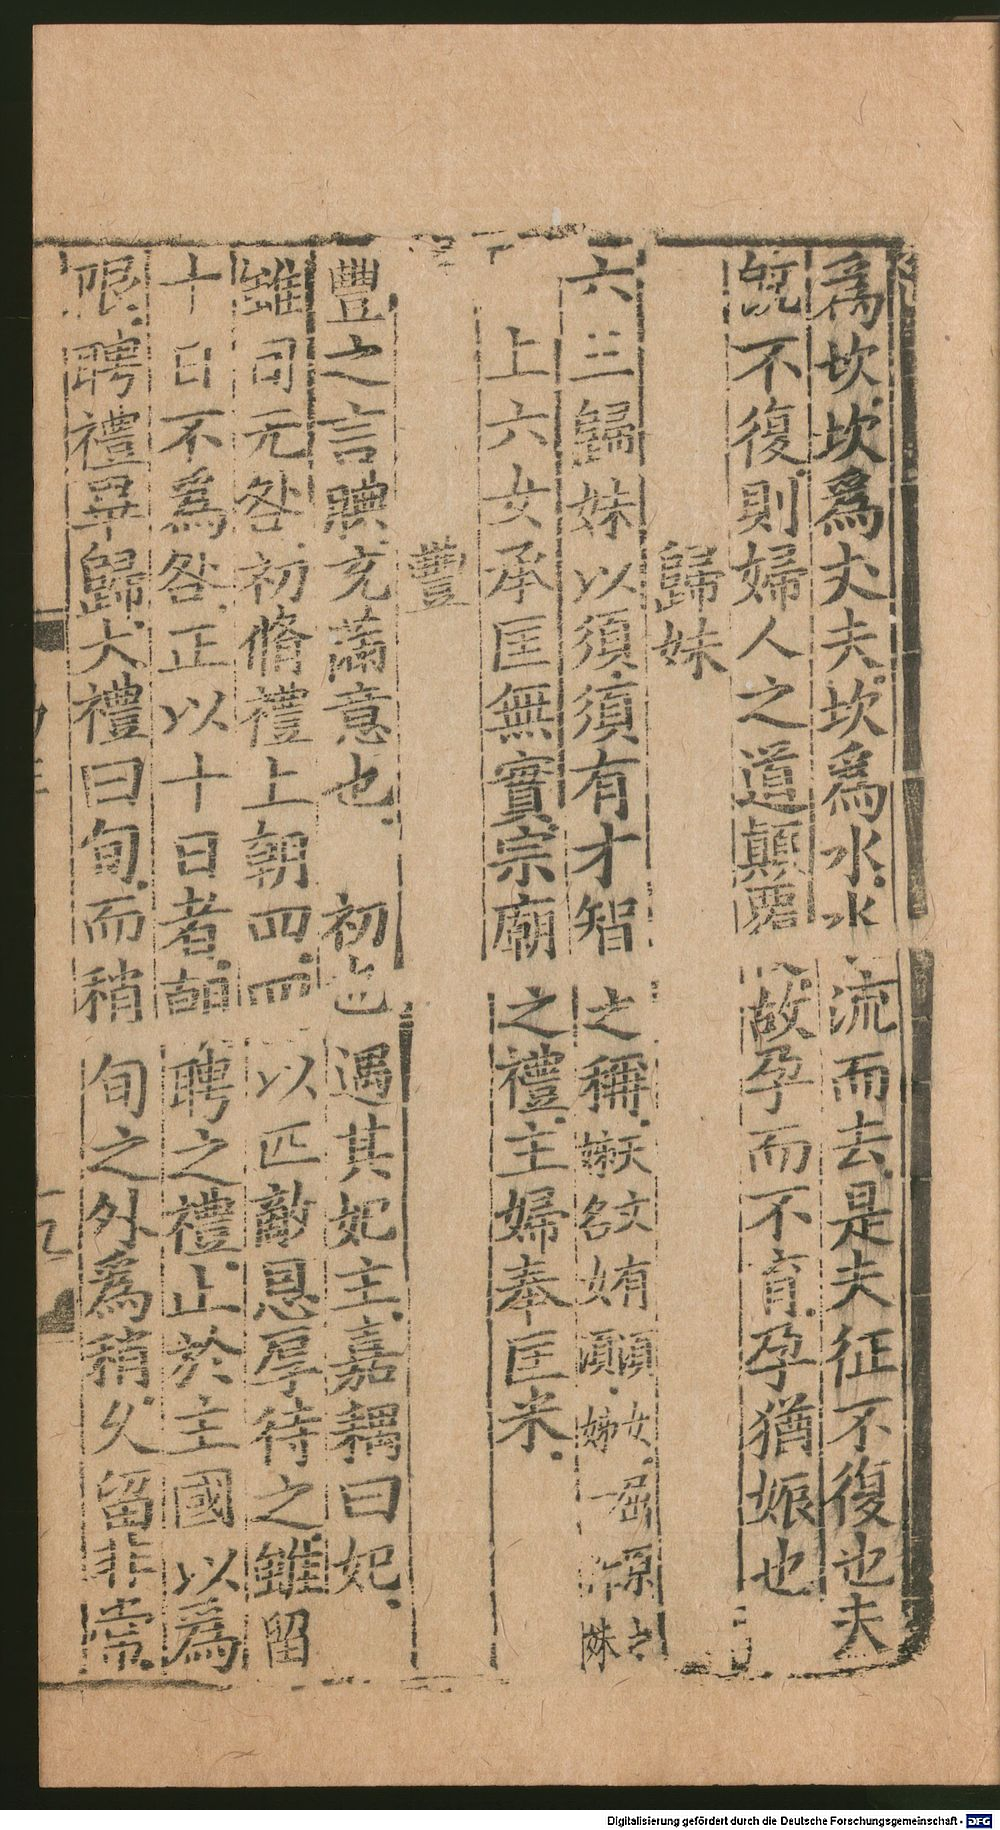 為坎坎為丈夫坎為水水流而去是夫征不復也夫
既不復則婦人之道顛覆故孕而不育孕猶娠也
歸妹
六三歸妹以須須有才智之稱天文有須女屈原之
嫉名姷須姊妹
上六女承匡無實宗廟之禮主婦奉匡米
豐
豐之言腆充滿意也 初也遇其妃主嘉耦曰妃
雖旬无咎初脩禮上朝四四以匹敵恩厚待之雖留
十日不為咎正以十日者朝聘之禮止於主國以為
限聘禮畢歸大禮曰旬而稍旬之外為稍久留非常
Digitalisierung gefördert durch die Deutsche Forschungsgemeinschaft - DFG